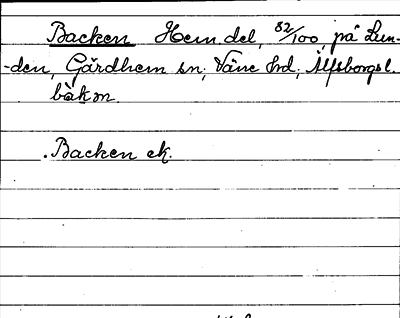 Backen Hem. del, 82/100, på Lun-
-den, Gärdhem sn; Väne hd; Älfsborgs l.
bàk𝑛.
. Backen ek.